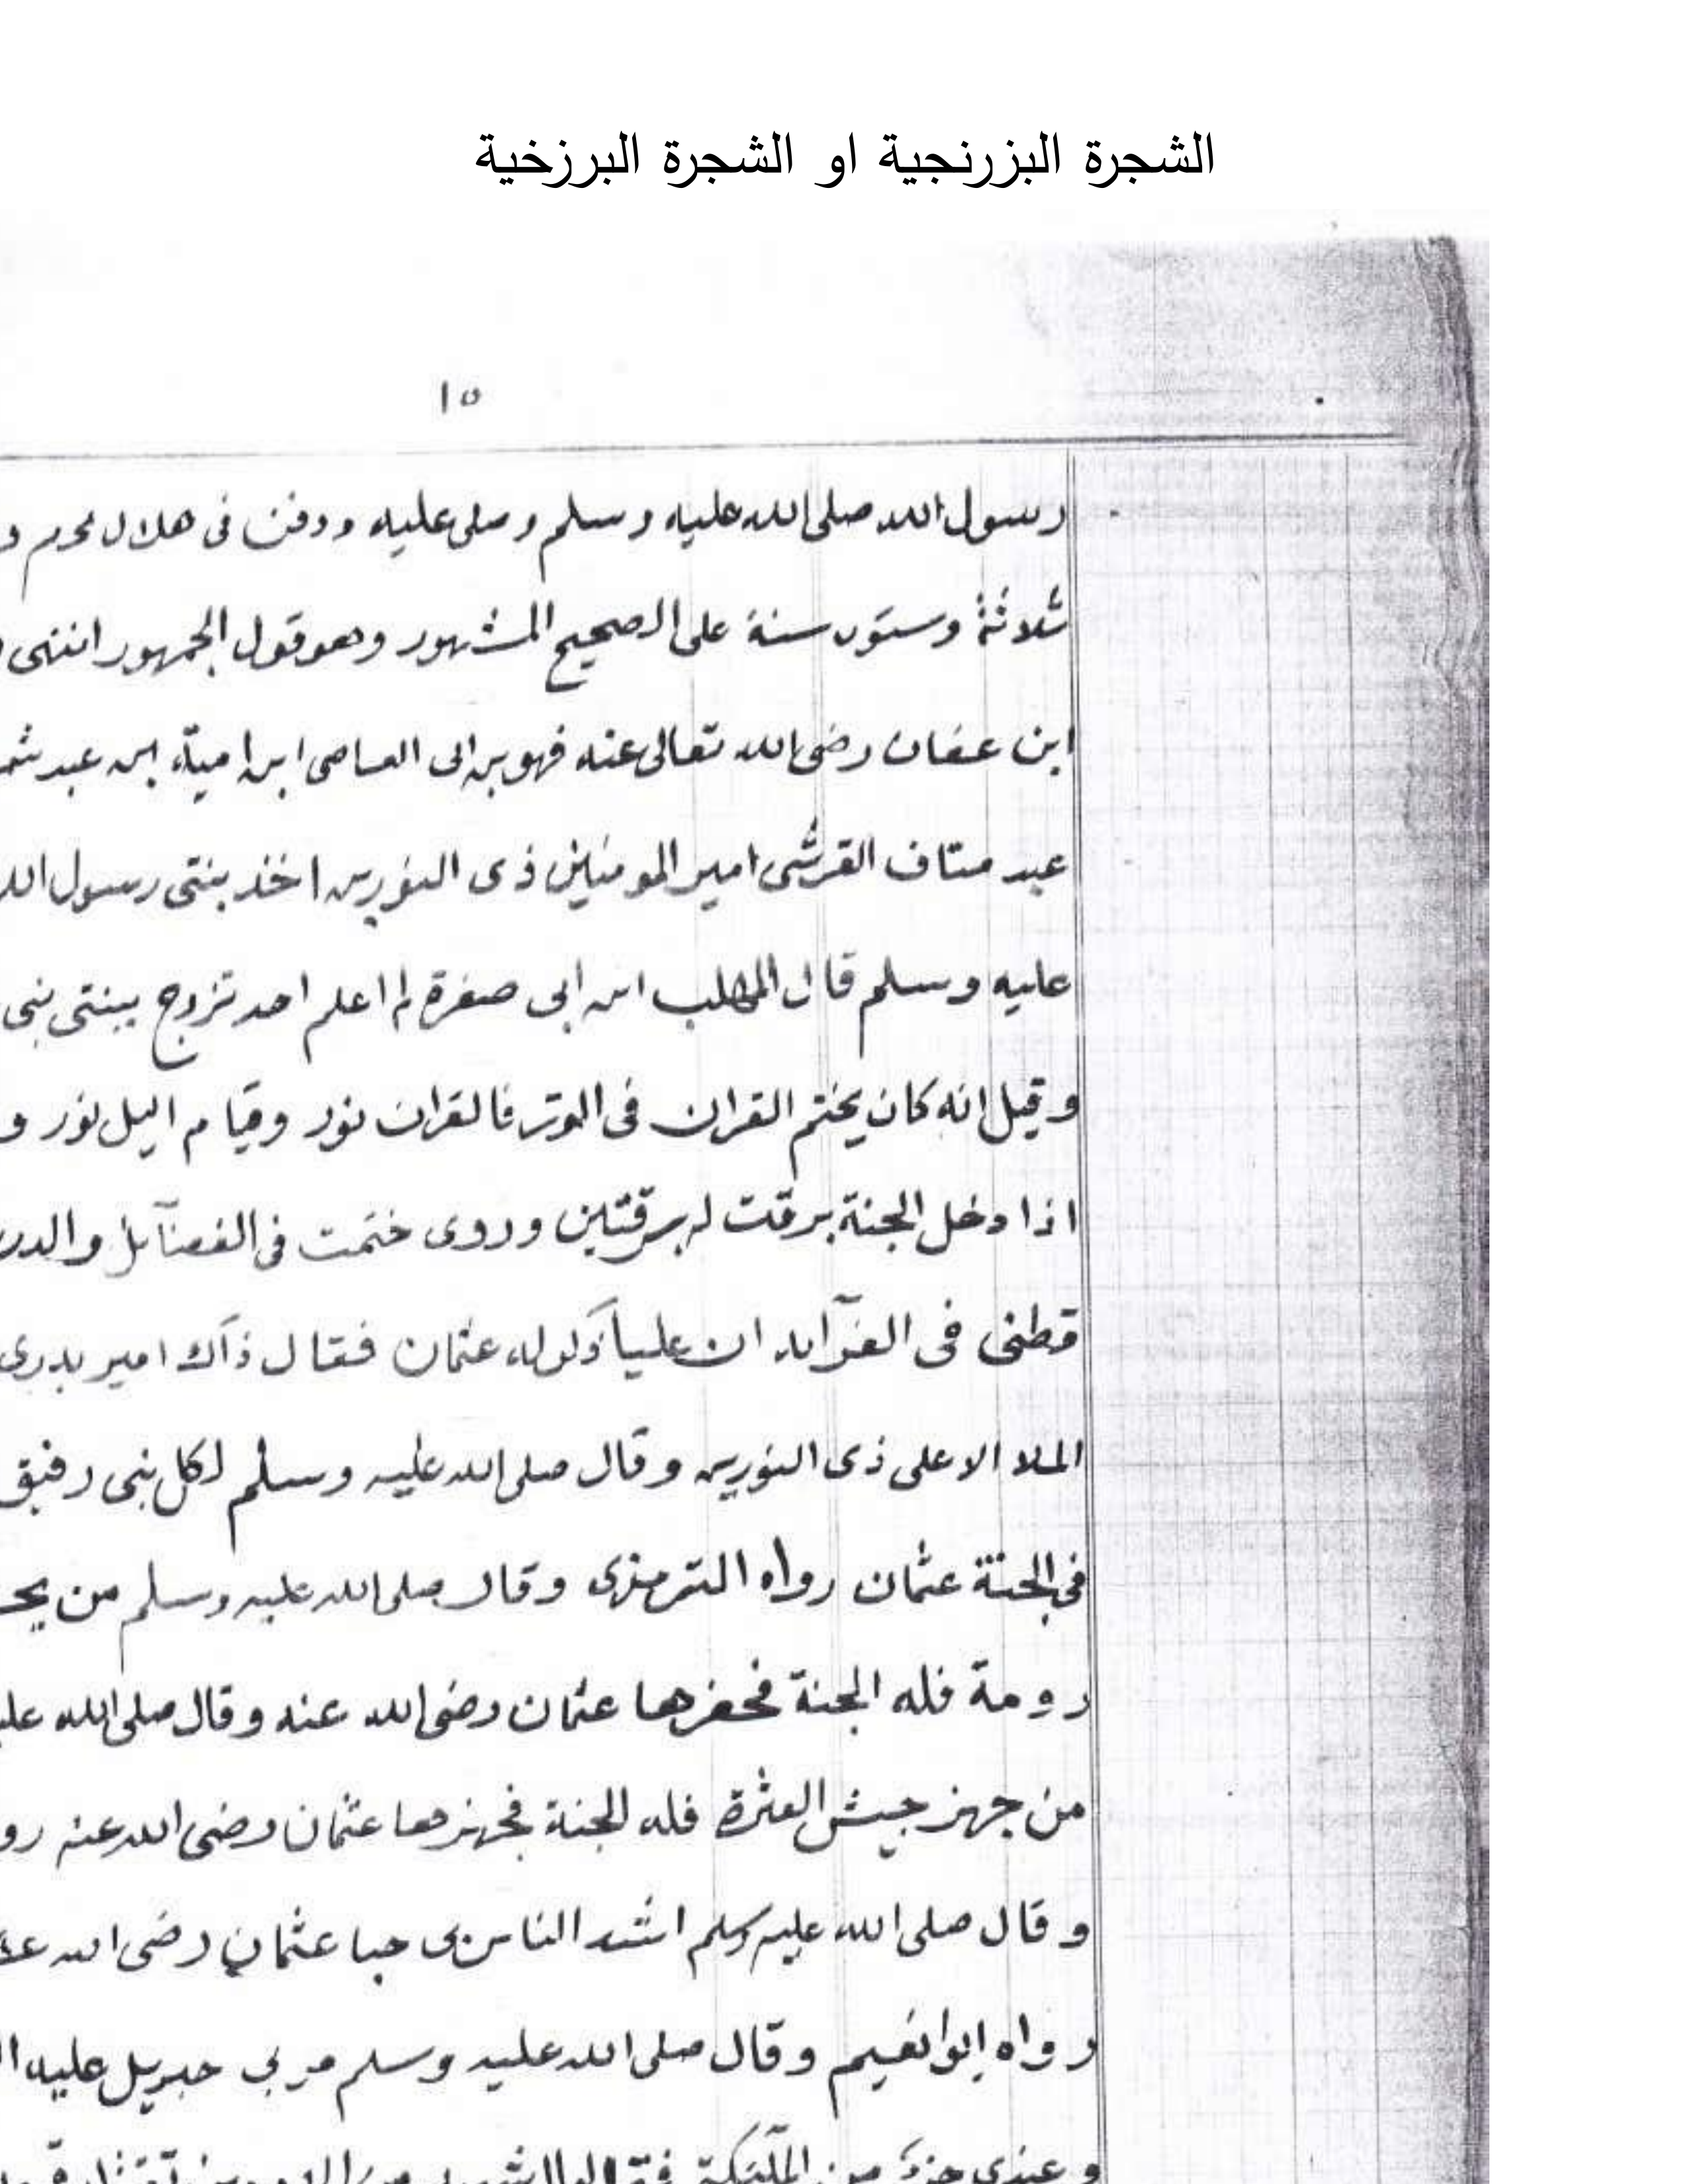 الشجرة البزرنجية او الشجرة البرزخية
١٥
رسول الله صلى الله عليه وسلم وصلى عليه ودفن فى هلال محرم و
ثلاثة وستون سنة على الصحيح المشهور وهو قول الجمهور انتهى
ابن عفان رضى الله تعالى عنه فهو بن ابى العاصى ابن امية ابن عبد شم
عبد مناف القرشى امير المومنين ذى النورين اخذ بنتى رسول الل
عليه وسلم قال المهلب ابن ابى صفرة لم اعلم احد تزوج ببنتى نبى
وقيل انه كان يختم القران فى الوتر فالقران نور وقيام اليل نور و
اذا دخل الجنة برقت له برقتين وروى ختمت فى الفضآئل والدر
قطنى فى ان علياً ذكر له عثمان فقال ذآك امير يدرى
الملا الاعلى ذى النورين وقال صلى الله عليه وسلم لكل نبى رفيق
فى الجنة عثمان رواه الترمزى وقال صلى الله عليه وسلم من يح
رومة فله الجنة فحفرها عثمان رضى الله عنه وقال صلى الله علي
من جهز جيش العثرة فله الجنة فجهزها عثمان رضى الله عنه رو
وقال صلى الله عليه وسلم اشد الناس حبا عثمان رضى الله عن
رواه ابوا نعيم وقال صلى الله عليه وسلم مر بى جبريل عليه ا
وعندى من الملئكة